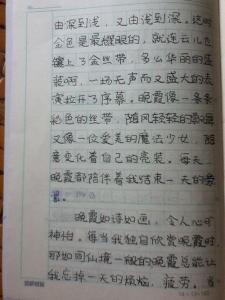 由深到浅，又由浅到深。这时
金色是最耀眼的，就连云儿也
镶上了金丝带，多么华丽的盛
装啊，一场无声而又盛大的表
演拉开了序幕。晚霞像一条条
彩色的丝带，随风轻轻的飘
又像一位爱美的魔法少女，随
意变化着自己的亮装。每天，
晚霞都陪伴着我结束一天的
晚霞如诗如画，令人心旷
神怡。每当我独自欣赏晚霞时，
那如同仙境一般的晚霞总能让
我忘掉一天的烦恼、疲劳。